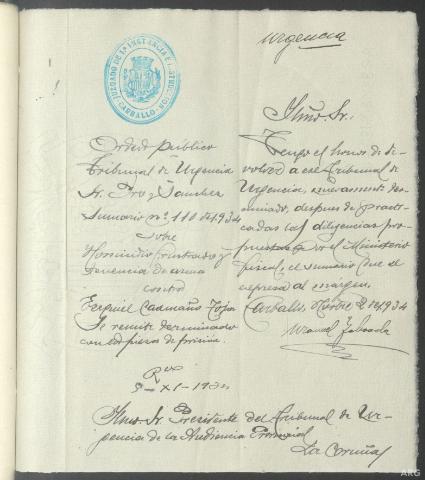 Urgencia
JUZGADO DE 1ª INSTANCIA E INSTRUCCION
CARBALLO
Orden público
Tribunal de Urgencia
Sr. Pro y Sanchez
Sumario nº 110 de 1.934
sobre
Homicidio frustrado y
tenencia de arma
contra
Ezequiel Caamaño Tojo
Se remite terminado
con la pieza de prisión.
Ilmo. Sr.
Tengo el honor de de-
volver a ese Tribunal de
Urgencia, nuevamente ter-
minado, despues de practi-
cadas las diligencias pro-
puestas por el Ministerio
fiscal, el sumario que se
expresa al margen.
Carballo, de 1.934
Manuel Taboada
Rdo
XI-
Ilmo. Sr. Presidente del Tribunal de Ur-
gencia de la Audiencia Provincial
La Coruña
ARG